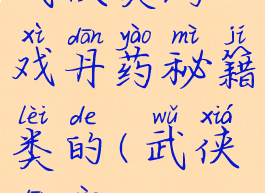 xì dān yào mì jí
戏丹药秘籍
lèi de wǔ xiá
类的(武侠